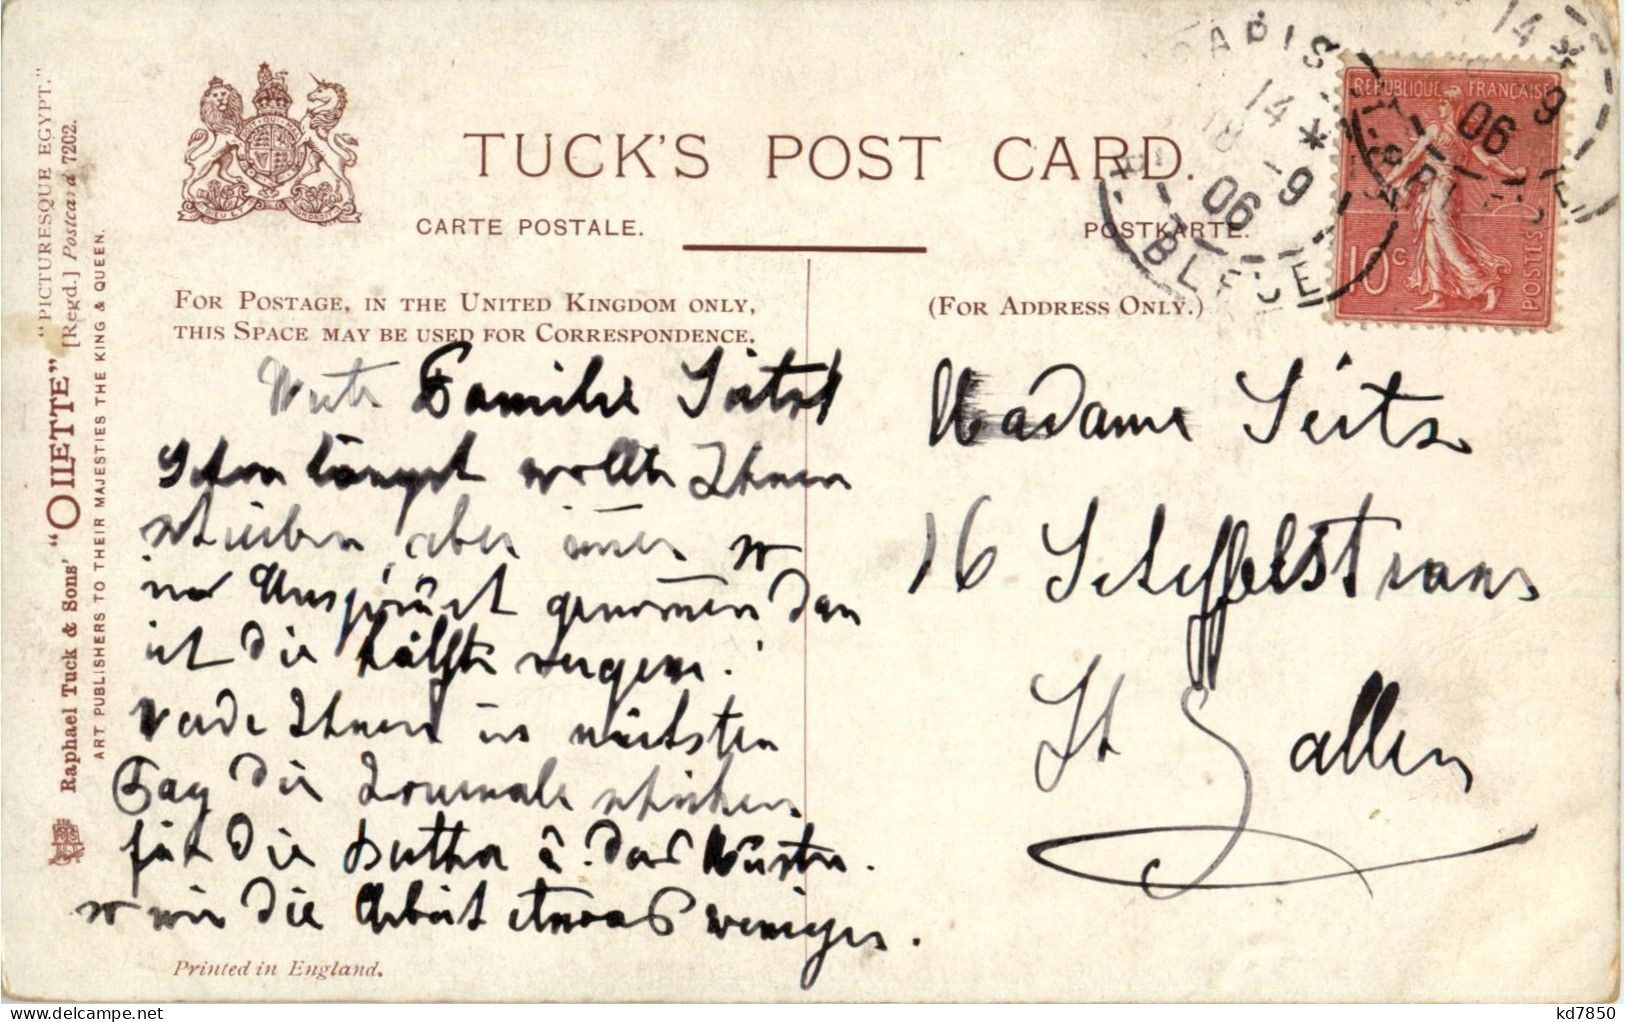 TUCK'S POST CARD.
CARTE POSTALE.
POSTKARTE.
FOR POSTAGE, IN THE UNITED KINGDOM ONLY,
THIS SPACE MAY BE USED FOR CORRESPONDENCE.
(FOR ADDRESS ONLY.)
"PICTURESQUE EGYPT."
[Regd.] Postcard 7202.
Raphael Tuck & Sons' "OILETTE"
ART PUBLISHERS TO THEIR MAJESTIES THE KING & QUEEN.
REPUBLIQUE FRANÇAISE
10 C
POSTES
PARIS
14 * 9
06
14 * 9
06
BLEUE
Familie Seitz
Schon längst wollte Ihnen
schreiben, aber immer so
in Anspruch genommen dan
ist die Hälfte vergess.!
Werde Ihnen in nächsten
Tag die Journale schicken
für die Bertha &. das
so wie die Arbeit etwas weniger.
Madame Seitz
16 Scheffelstrasse
St Gallen
Printed in England.
kd7850